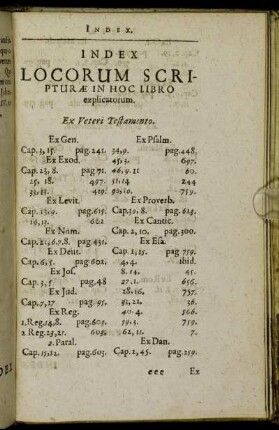 INDEX.
INDEX
LOCORUM SCRI-
PTURÆ IN HOC LIBRO
explicatorum.
Ex Veteri Testamento.
Ex Gen.
Cap. 3, 15. pag. 241.
Ex Exod.
Cap. 23, 8. pag 71.
25, 18. 497.
33, 13. 419.
Ex Levit.
Cap. 13, 9. pag. 615.
19, 15. 602
Ex Num.
Cap. 21, 6.7.8. pag. 431.
Ex Deut.
Cap. 6, 5. pag. 602.
Ex Jos.
Cap. 3, 5 pag. 48
Ex Jud.
Cap. 7, 17 pag. 95.
Ex Reg.
1. Reg. 14, 8. pag. 605.
2 Reg. 23, 25. 603.
2. Paral.
Cap. 15, 12. pag. 603.
Ex Psalm.
34, 9. pag. 448.
45, 3. 697.
46, 9. 11 60.
51, 14 244
90, 10. 759.
Ex Proverb.
Cap. 30, 8. pag. 625.
Ex Cantic.
Cap. 2, 10. pag. 300.
Ex Esa.
Cap. 2, 15. pag 759.
4, 4. ibid.
8. 14. 45.
27, 1. 656.
28, 16. 757.
31, 22. 36.
40, 4. 566.
59, 3. 759.
62, 11. 7.
Ex Dan.
Cap. 2, 45. pag. 259.
eee Ex